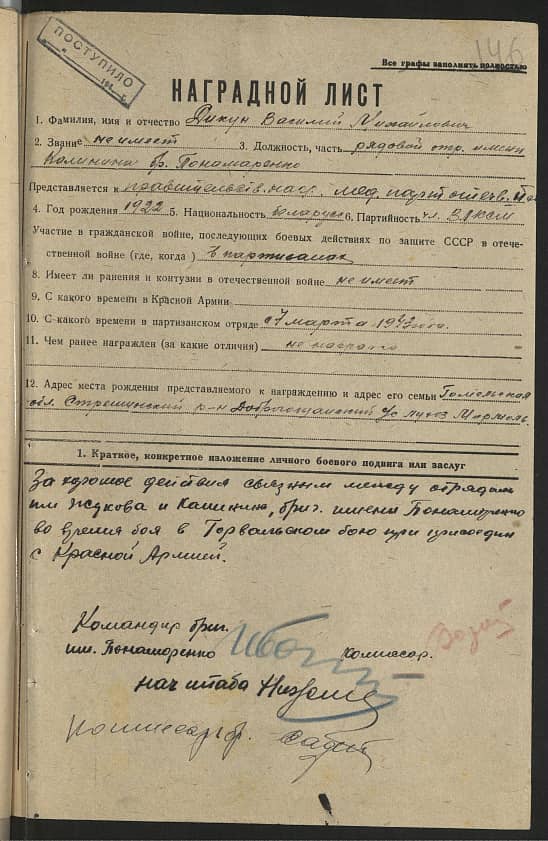 146
ПОСТУПИЛО
Все графы заполнять полностью
НАГРАДНОЙ ЛИСТ
1. Фамилия, имя и отчество Дикун Василий Михайлович
2. Звание не имеет 3. Должность, часть рядовой отр. имени
Калинина бр. Понамаренко
Представляется к правительств. наг. мед. парт. отеч.
4. Год рождения 1922 5. Национальность беларус 6. Партийность чл. ВЛКСМ
Участие в гражданской войне, последующих боевых действиях по защите СССР в отече-
ственной войне (где, когда) в партизанах
8. Имеет ли ранения и контузии в отечественной войне не имеет
9. С какого времени в Красной Армии
10. С какого времени в партизанском отряде с 7 марта 1943 года.
11. Чем ранее награжден (за какие отличия)
12. Адрес места рождения представляемого к награждению и адрес его семьи Гомельская
обл. Стрешинский р-н
1. Краткое, конкретное изложение личного боевого подвига или заслуг
За хорошое действия связным между отрядам
им Жукова и Калинина, бриг. имени Понамаренко
во время боя в бою при присоедин
с Красной Армией.
Командир бриг.
им. Понаморенко комиссар.
нач штаба
комиссар бр.